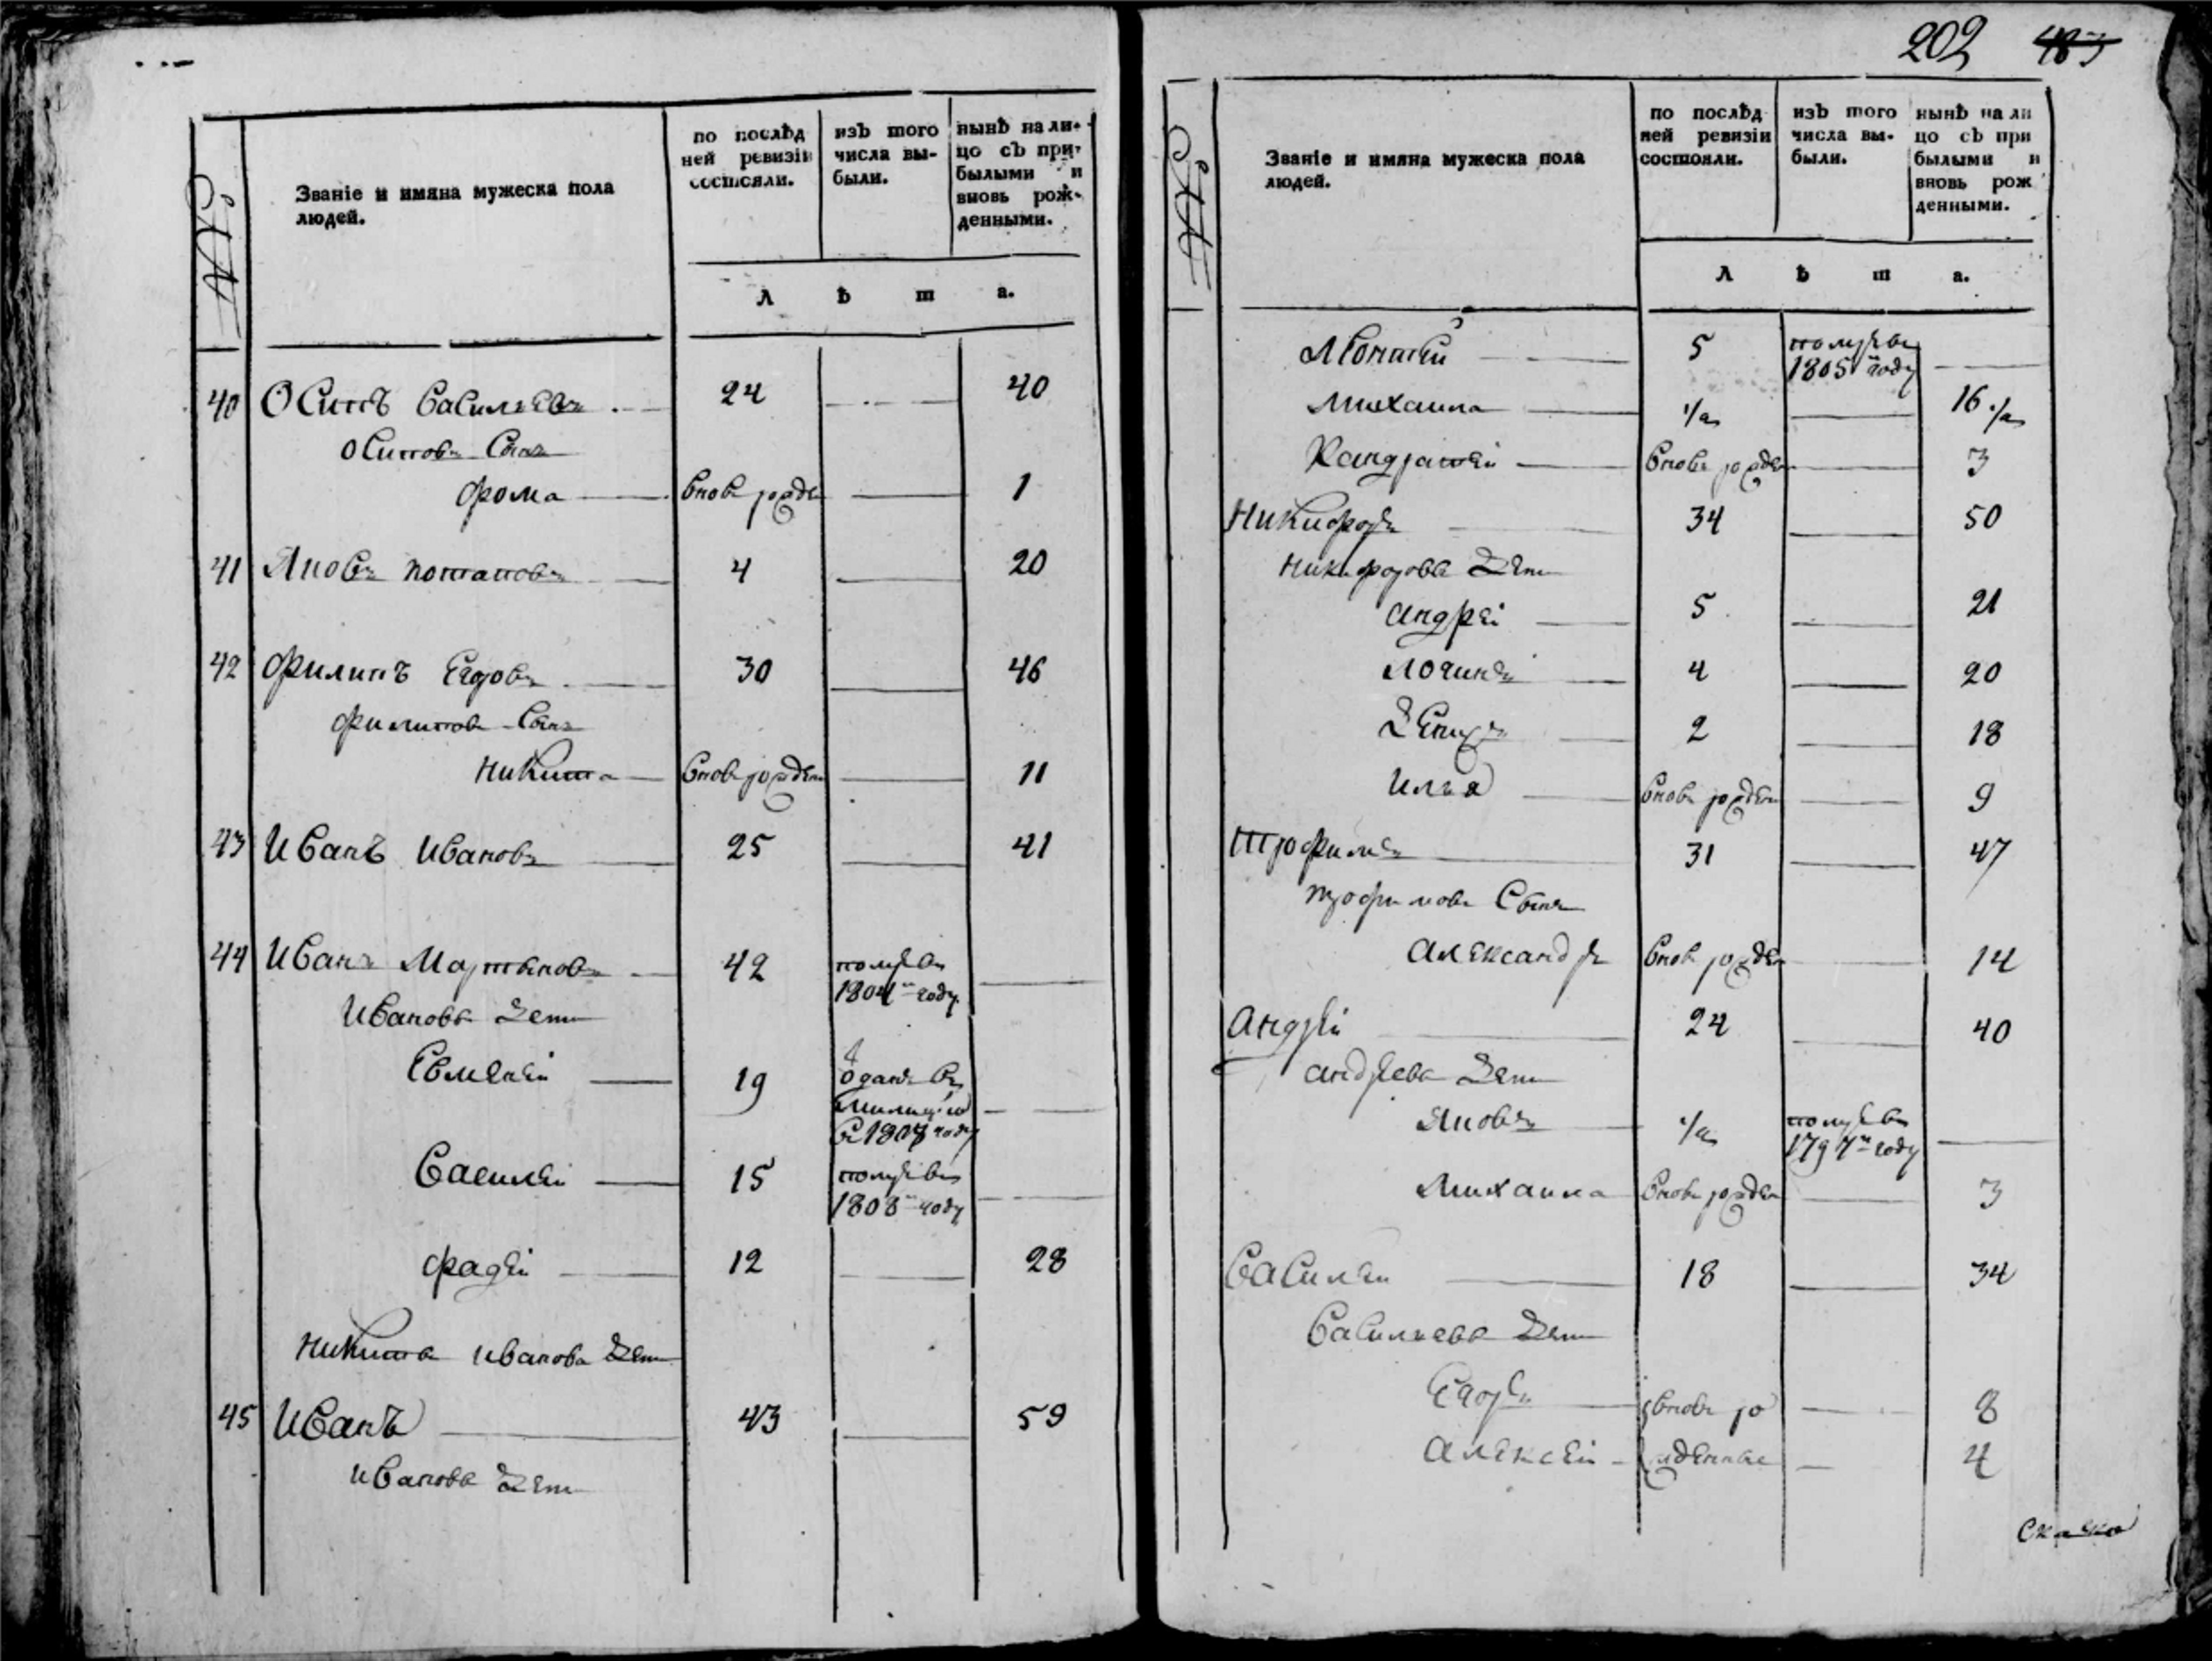 Званіе и имяна мужеска пола
людей.
по послѣд
ней ревизіи
состояли.
изъ того
числа вы-
были.
нынѣ на ли-
цо съ при-
былыми и
вновь рож-
денными.
Л ѣ т а.
40 Осипъ Васильевъ 24 40
Осиповъ Сынъ
Фома вновь рожден 1
41 Яковъ Потаповъ 4 20
42 Филипъ Егоровъ 30 46
Филиповъ Сынъ
Никита вновь рожден 11
43 Иванъ Ивановъ 25 41
44 Иванъ Мартыновъ 42 помре въ
1804м году
Ивановы Дети
Евменей 19 одданъ въ
милицiю
въ 1807 году
Василей 15 помре въ
1808м году
Фадей 12 28
Никита Иванова Дети
45 Иванъ 43 59
Иванова Дети
202 483
Званіе и имяна мужеска пола
людей.
по послѣд
ней ревизіи
состояли.
изъ того
числа вы-
были.
нынѣ на ли
цо съ при
былыми и
вновь рож
денными.
Л ѣ т а.
5 помре въ
1805м году
Михаила 1/2 16 1/2
Кандратей вновь рожден 3
Никифоръ 34 50
Никифорова Дети
Андрей 5 21
Логинъ 4 20
2 18
Илья вновь рожден 9
Трофимъ 31 47
Трофимовъ Сынъ
Александръ вновь рожден 14
Андрей 24 40
Андреева Дети
Яковъ 1/2 помре въ
1797м году
Михаила вновь рожден 3
Василей 18 34
Васильева Дети
Егоръ вновь ро 8
Алексей жденные 4